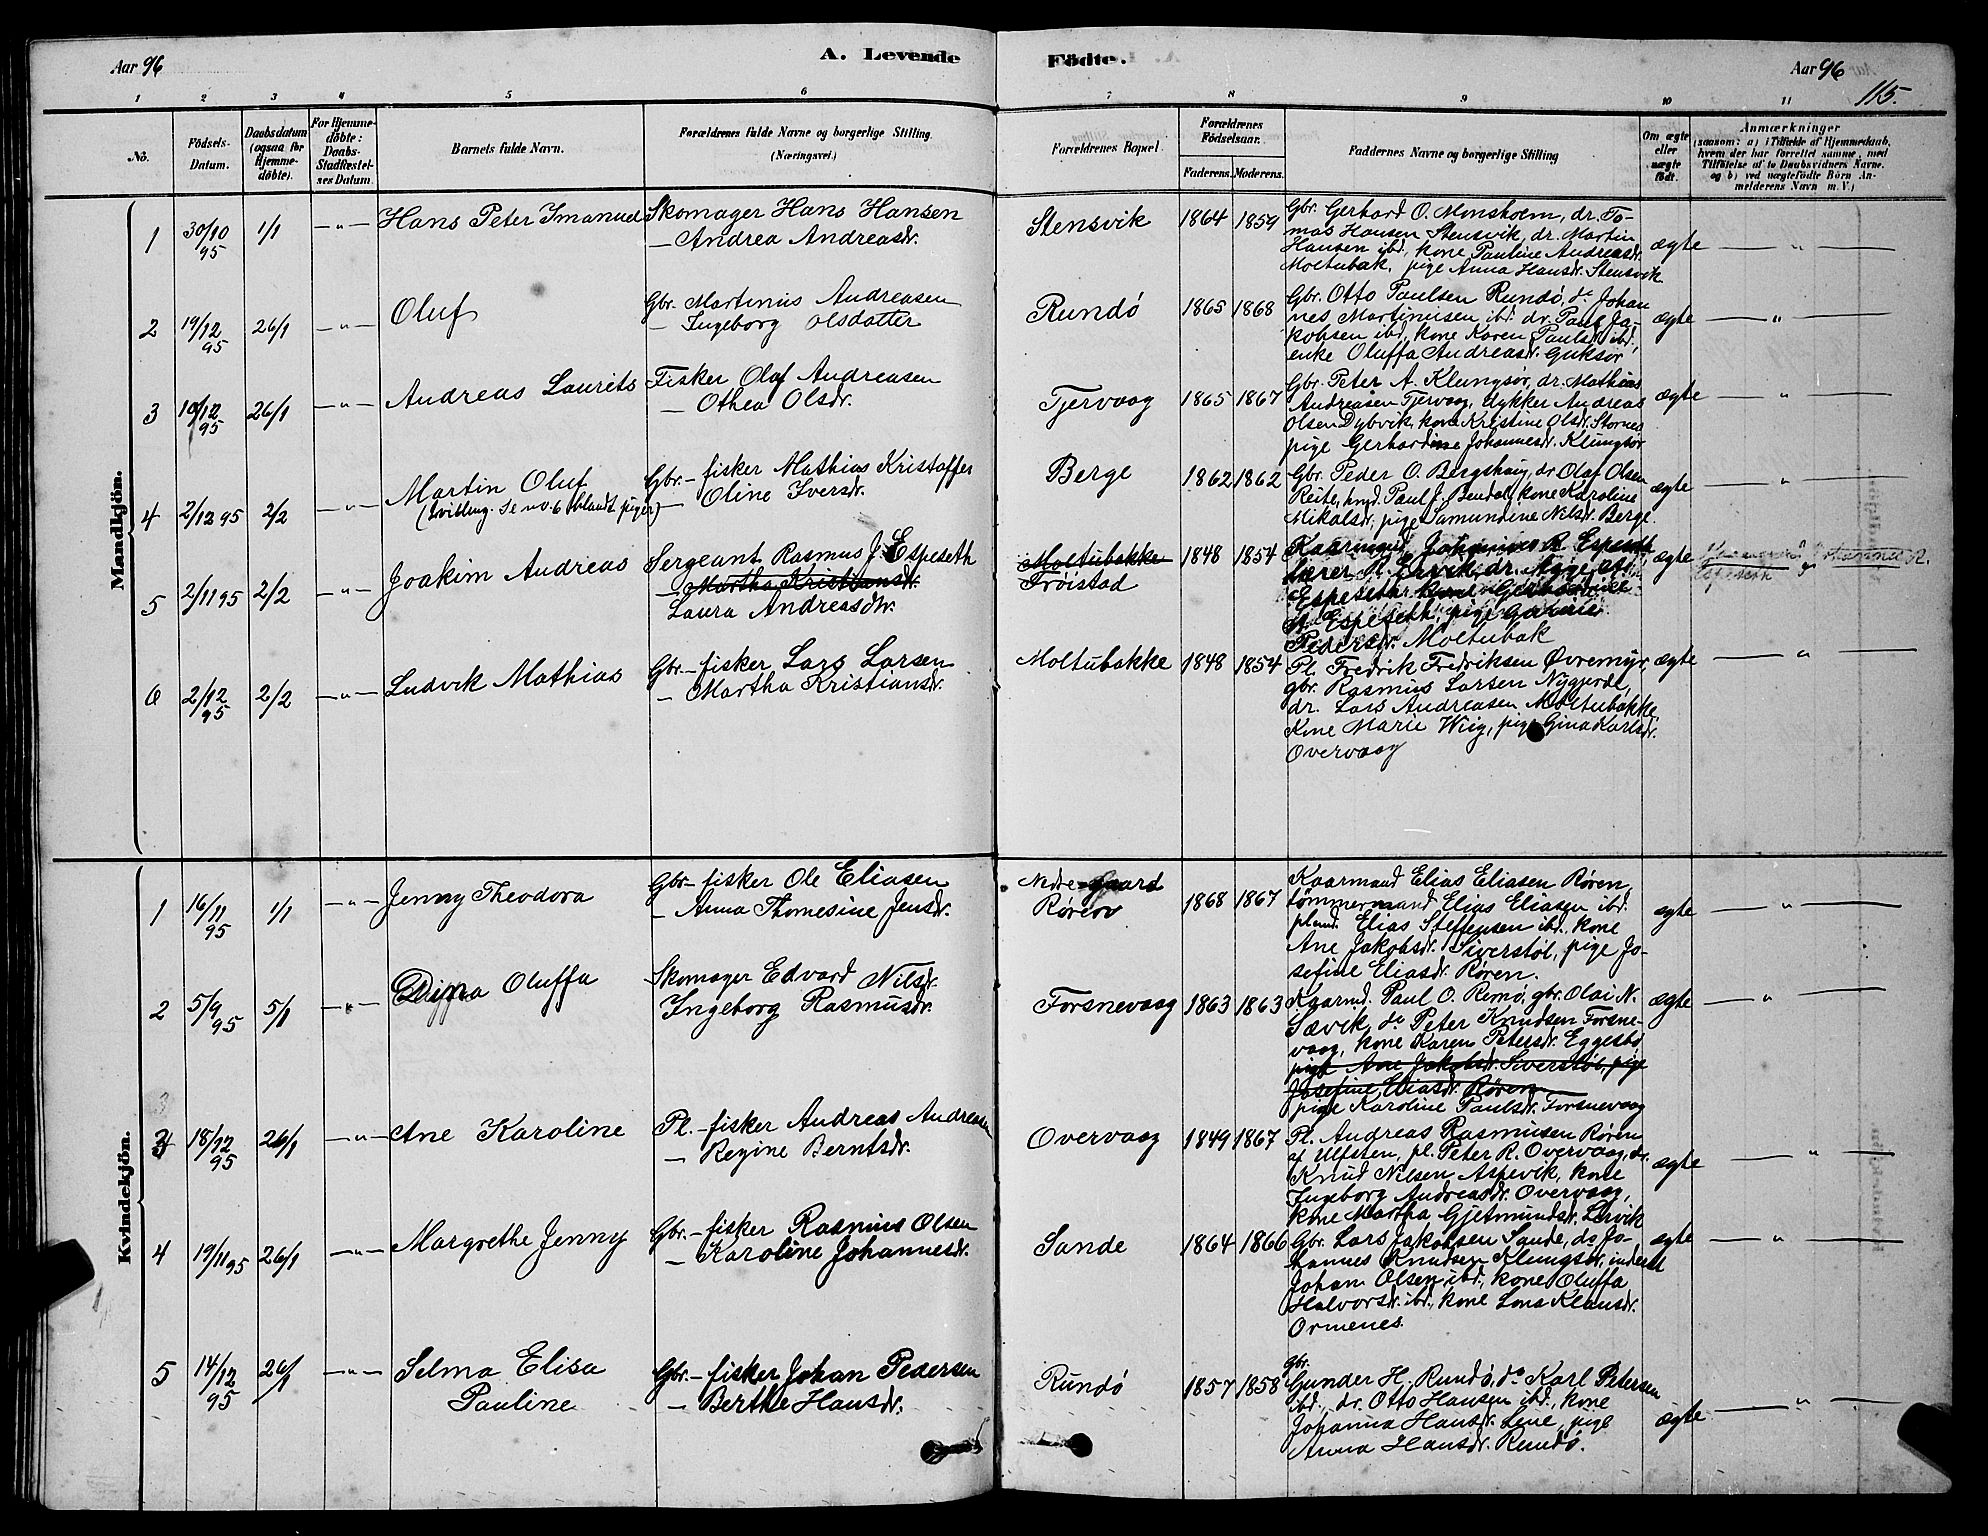 Aar 96
A. Levende
Födte.
Aar 96
115.
1 2 3 4 5 6 7 8 9 10 11
No.
Födsels-Datum.
Daabsdatum (ogsaa for Hjemme-döbte).
For Hjemme-döbte: Daabs-Stadfæstel-ses Datum.
Barnets fulde Navn.
Forældrenes fulde Navne og borgerlige Stilling.
(Næringsvei.)
Forældrenes Bopæl.
Forældrenes Födselsaar.
Faderens. Moderens.
Faddernes Navne og borgerlige Stilling
Om ægte eller uægte födt.
Anmærkninger
(saasom: a) i Tilfælde af Hjemmedaab, hvem der har forrettet samme, med Tilföielse af to Daabsvidners Navne. og b) ved uægtefödte Börn An-melderens Navn m. V.)
Mandkjön.
1 30/10 95 1/1 —"— Hans Peter Imanuel
Skomager Hans Hansen
— Andrea Andreasdr.
Stensvik 1864 1859
Gbr. Gerhard O. Monshoem, dr. To-
mas Hansen Stensvik, dr. Martin
Hansen ibd, kone Pauline Andreasdr.
Moltubak, pige Anna Hansdr. Stensvik.
ægte —"—
2 19/12 95 26/1 —"— Oluf
Gbr. Martinus Andreasen
— Ingeborg Olsdatter
Rundö 1865 1868
Gbr. Otto Paulsen Rundö, do Johan
nes Martinusen ibd. dr. Paul Ja-
kobsen ibd, kone Karen Paulsdr. ibd,
enke Oluffa Andreasdr. Guksør
ægte —"—
3 10/12 95 26/1 —"— Andreas Laurits
Fisker Olaf Andreasen
— Othea Olsdr.
Tjervaag 1865 1867
Gbr. Peter A. Klungsør, dr. Mathias
Andreasen Tjervaag, dykker Andreas
Olsen Dybvik, kone Kristine Olsdr. Stornes
pige Gerhardine Johannesdr. Klungsør
ægte —"—
4 2/12 95 2/2 —"— Martin Oluf
(Tvilling. Se no. 6 blandt piger)
Gbr.- fisker Mathias Kristoffer
— Oline Iversdr.
Berge 1862 1862
Gbr. Peder O. Bergshaug, dr. Olaf Olsen
Reite, hmd. Paul J. Bendal, kone Karoline
Mikalsdr, pige Samundine Nilsdr. Berge.
ægte —"—
5 2/11 95 2/2 —"— Joakim Andreas
Sergeant Rasmus J. Espeseth
— Martha Kristiansdr.
Laura Andreasdtr.
Moltubakke
Frøistad
1848 1854
Kaarmand Johannes R. Espeset
lærer A. Ervik, dr. Aage
Espeseth, kone Gerhardine
A. Espeseth, pige Gurine
Pedersdr. Moltubak
ægte
Johannes R.
Espeseth
6 2/12 95 2/2 —"— Ludvik Mathias
Gbr.- fisker Lars Larsen
— Martha Kristiansdr.
Moltubakke 1848 1854
Pl. Fredrik Fredriksen Øvremyr,
gbr. Rasmus Larsen Nygjerde,
dr. Lars Andreasen Moltubakke,
Kone Marie Wiig, pige Gina Karlsdr.
Overvaag
ægte —"—
Kvindekjön.
1 16/11 95 1/1 —"— Jenny Theodora
Gbr.- fisker Ole Eliasen
— Anna Thomesine Jensdr.
Nedregaard
Røren
1868 1867
Kaarmand Elias Eliasen Røren,
tømmermand Elias Eliasen ibd.
plmd. Elias Steffensen ibd. kone
Ane Jakobsdr. Siverstøl, pige Jo-
sefine Eliasdr. Røren.
ægte —"—
2 5/9 95 5/1 —"— Dina Oluffa
Skomager Edvard Nilsdr.
Ingeborg Rasmusdr.
Forsnevaag 1863 1863
Kaarmd. Paul O. Remö, gbr. Olai N.
Sævik, do Peter Knudsen Forsne-
vaag, kone Karen Petersdr. Eggesbö
pige Ane Jakobsdr. Siverstøl, pige
Josefine Eliasdr. Røren
pige Karoline Paulsdr. Forsnevaag
ægte —"—
3 18/12 95 26/1 —"— Ane Karoline
Pl.- fisker Andreas Andreasen
— Regine Berntsdr.
Overvaag 1849 1867
Pl. Andreas Rasmusen Røren
af Ulfsten, pl. Peter R. Overvaag, dr.
Knud Nilsen Aspevik, kone
Ingeborg Andreasdr. Overvaag,
kone Martha Gjetmundsdr. Lervik
ægte —"—
4 19/11 95 26/1 —"— Margrethe Jenny
Gbr.- fisker Rasmus Olsen
— Karoline Johannesdr.
Sande 1864 1866
Gbr. Lars Jakobsen Sande, do Jo-
hannes Knudsen Klungsør, inderst
Johan Olsen ibd., kone Oluffa
Halvorsdr. ibd., kone Lona Klausdr.
Ormenes.
ægte —"—
5 14/12 95 26/1 —"— Selma Elisa
Pauline
Gbr.- fisker Johan Pedersen
— Berthe Hansdr.
Rundö 1857 1858
Gbr.
Gunder H. Rundö, do Karl Petersen
ibd., dr. Otto Hansen ibd., kone
Johanna Hansdr. Leine, pige
Anna Hansdr. Rundö.
ægte —"—